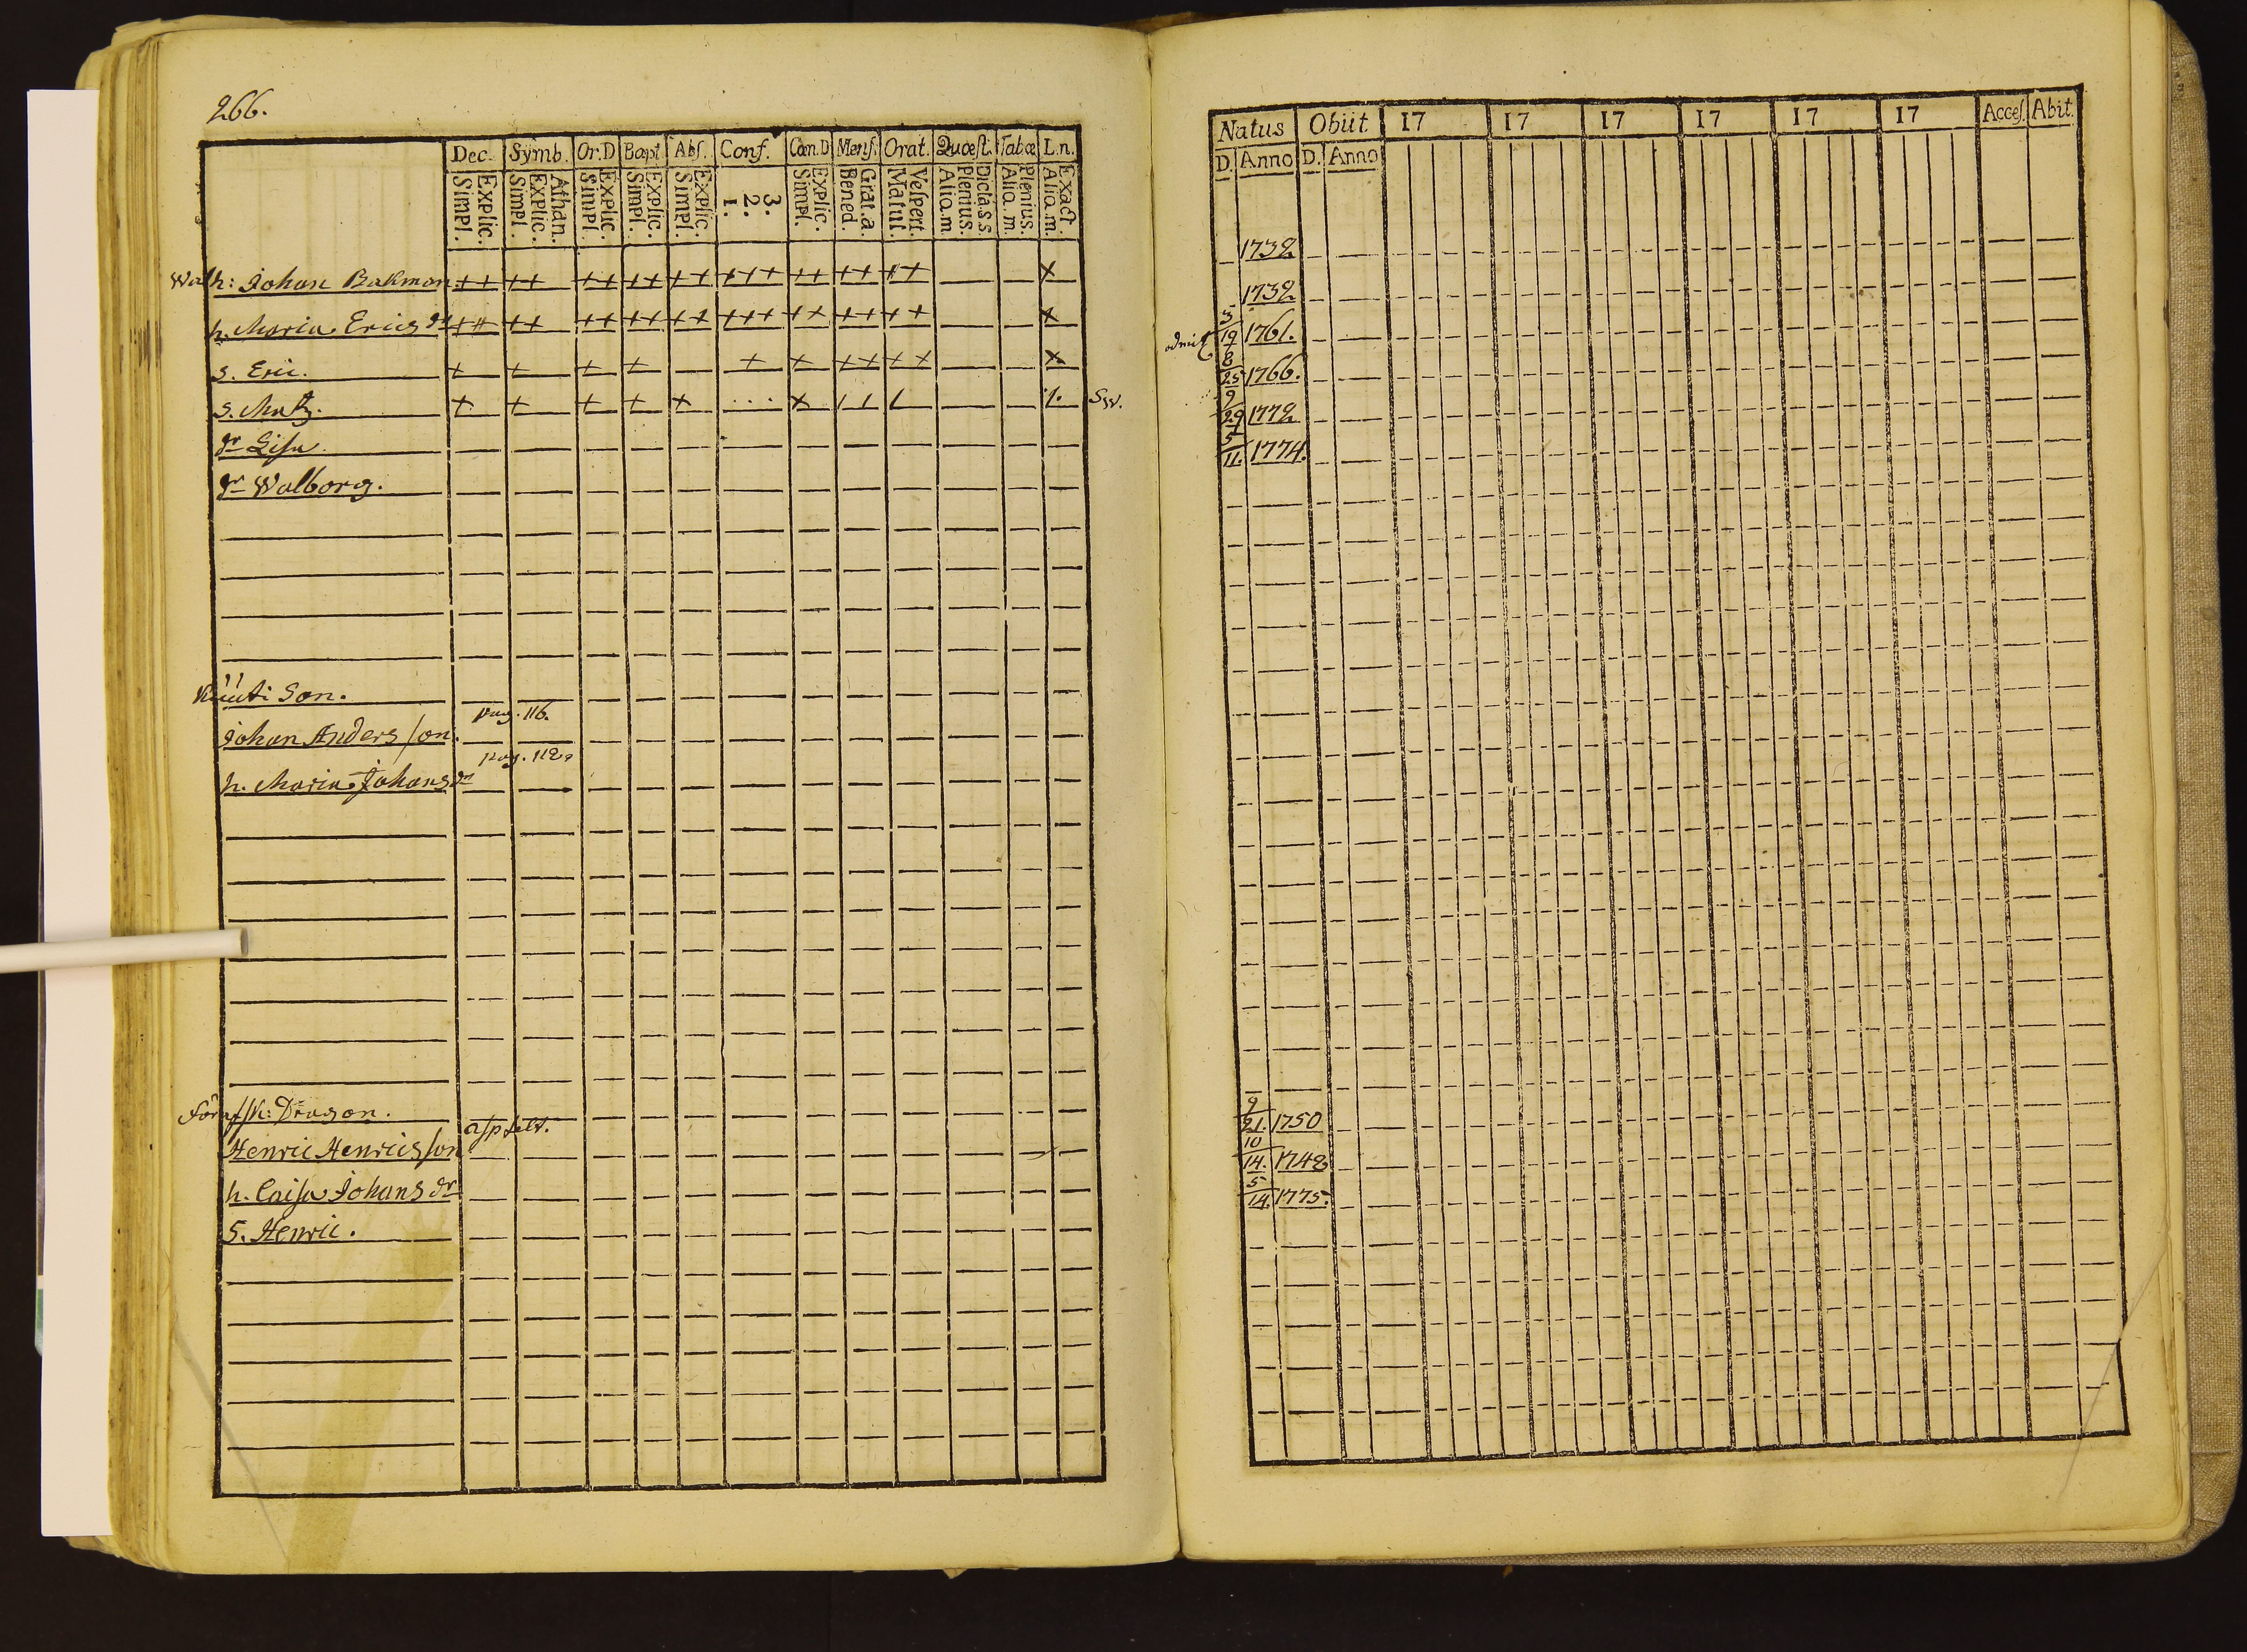 266.
Dec. Symb. Or.D Bapt Abs. Conf. Cœn.D Mens. Orat. Quæst. Tabæ L.n.
Simpl. Explic. Simpl. Explic. Athan. Simpl. Explic. Simpl. Explic. Simpl. Explic. 1. 2. 3. Simpl. Explic. Bened. Grat.a. Matut. Vespert. Aliq.m Plenius. Dicta.s.s. Aliq.m. Plenius. Aliq.m. Exact.
h: Johan Bakman ++ ++ ++ ++ ++ +++ ++ ++ ++ x
h. Maria Erics dr ++ ++ ++ ++ ++ +++ ++ ++ ++ x
s. Eric. + + + + + + ++ ++ x
s. Matz. + + + + x ... x Sw.
dr Lisa.
dr Walborg.
Son.
pag. 116.
Johan Andersson.
pag. 112.
h. Maria Johans dr
Dragon.
Henric Henricsson
h. Caisa Johans dr
S. Henric.
Natus Obiit 17 17 17 17 17 17 Acces. Abit.
D. Anno D. Anno
1732
1732
admit 3/19 1761.
8/25 1766.
9/29 1772
5/11. 1774.
9/21. 1750
10/14. 1742
5/14. 1775.